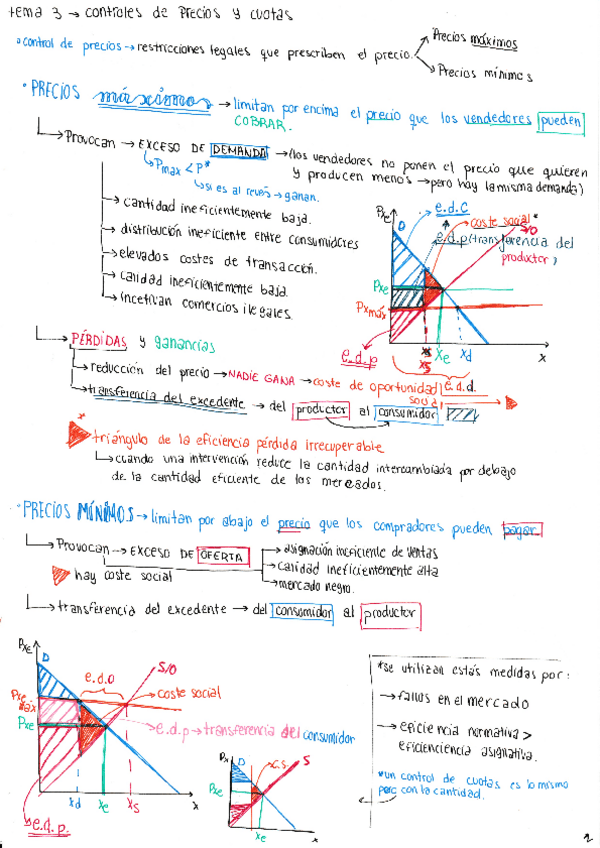 tema 3 → controles de Precios y cuotas
control de precios → restricciones legales que prescriben el precio.
Precios máximos
Precios mínimos
PRECIOS máximos → limitan por encima el precio que los vendedores pueden
COBRAR.
Provocan → EXCESO DE DEMANDA → (los vendedores no ponen el precio que quieren
Pmax < P*
y producen menos → pero hay la misma demanda)
si es al revés → ganan.
cantidad ineficientemente baja.
distribución ineficiente entre consumidores
elevados costes de transacción.
calidad ineficientemente baja.
incetivan comercios ilegales.
Px
e.d.c
D
coste social*
S/O
e.d.p (transferencia del
productor)
Pxe
Pxmáx
e.d.p
xs
xe
xd
x
e.d.d.
PÉRDIDAS y ganancias
reducción del precio → NADIE GANA → coste de oportunidad
social
transferencia del excedente → del productor al consumidor
* triángulo de la eficiencia pérdida irrecuperable
cuando una intervención reduce la cantidad intercambiada por debajo
de la cantidad eficiente de los mercados.
PRECIOS MÍNIMOS → limitan por abajo el precio que los compradores pueden pagar
Provocan → EXCESO DE OFERTA
asignación ineficiente de ventas
calidad ineficientemente alta
mercado negro.
hay coste social
transferencia del excedente → del consumidor al productor
D
e.d.o
S/O
coste social
e.d.p → transferencia del consumidor
Pxe
xd
xe
xs
x
e.d.p.
Px
D
c.s.
S
Pxe
xe
x
*se utilizan estás medidas por:
→ fallos en el mercado
→ eficiencia normativa >
eficienciencia asignativa.
*un control de cuotas es lo mismo
pero con la cantidad.
2